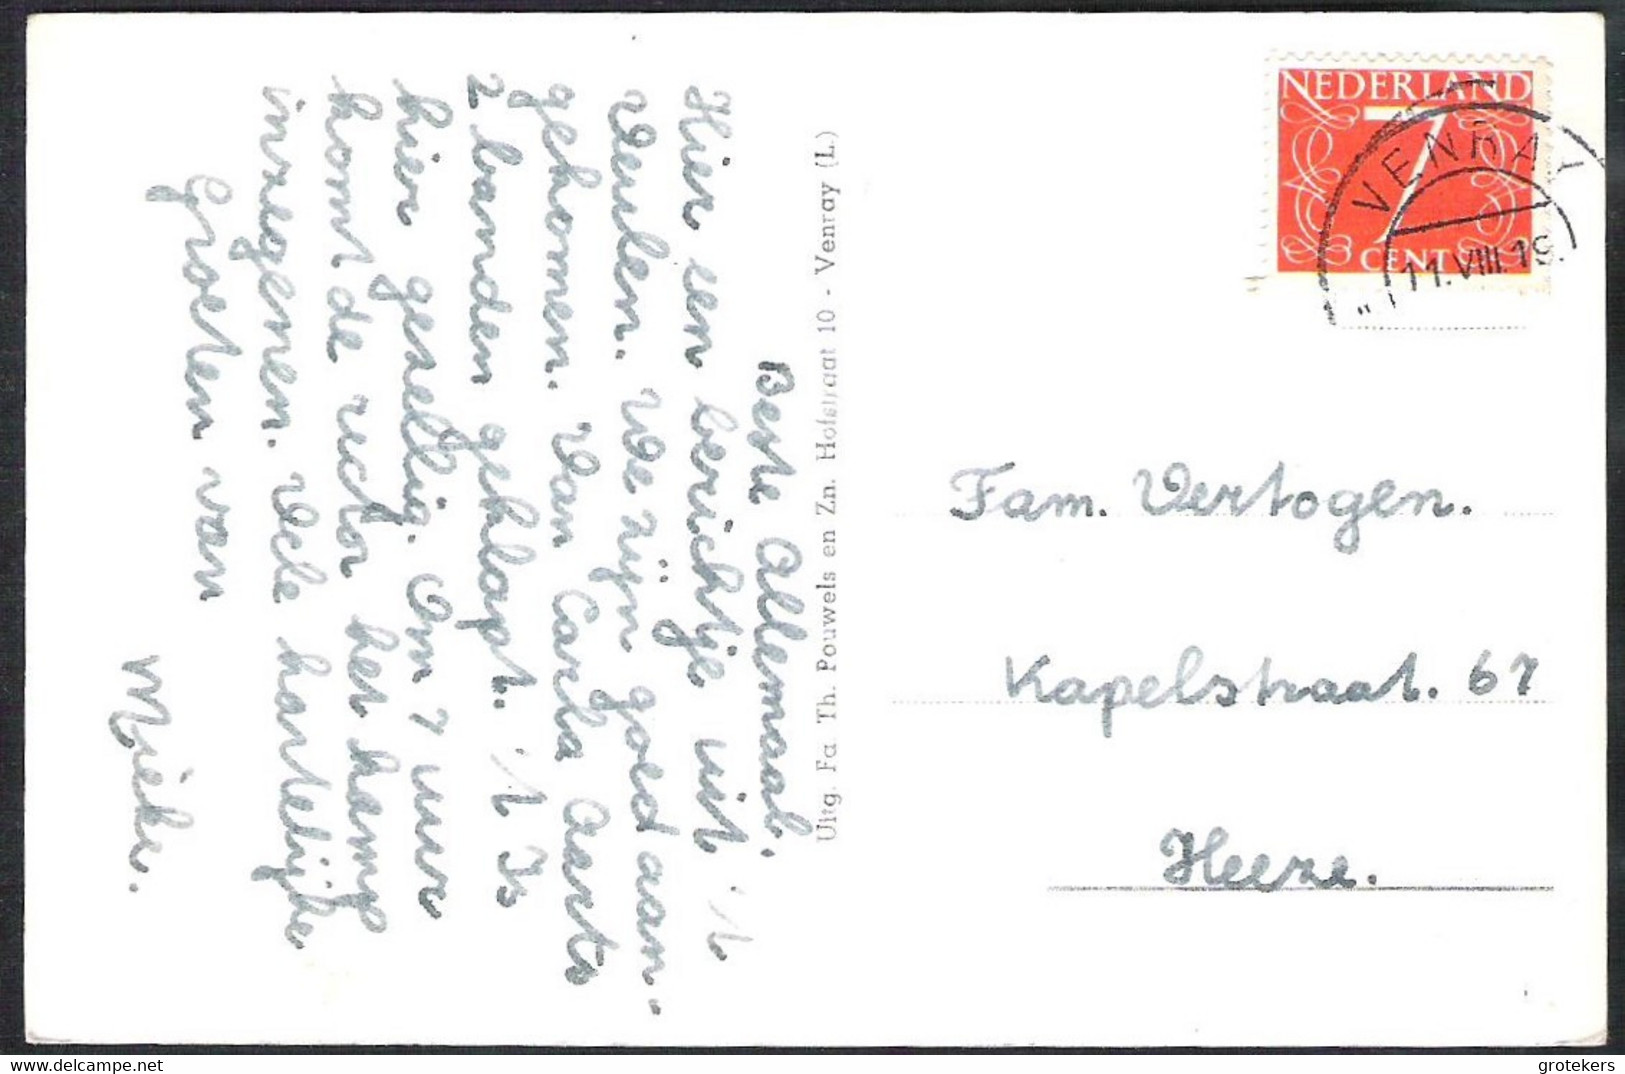 Beste Allemaal.
Hier een berichtje uit 't
Veulen. We zijn goed aan-
gekomen. Van Carla Aerts
2 banden geklapt. 't Is
hier gezellig. Om 7 uur
komt de rector het kamp
inzegenen. Vele hartelijke
Groeten van
Mieke.
Uitg. Fa. Th. Pouwels en Zn. Hofstraat 10 - Venray (L.)
NEDERLAND
7
CENT
VENRAY
11.VIII.19.
Fam. Vertogen.
Kapelstraat. 67
Heeze.
delcampe.net
grotekers